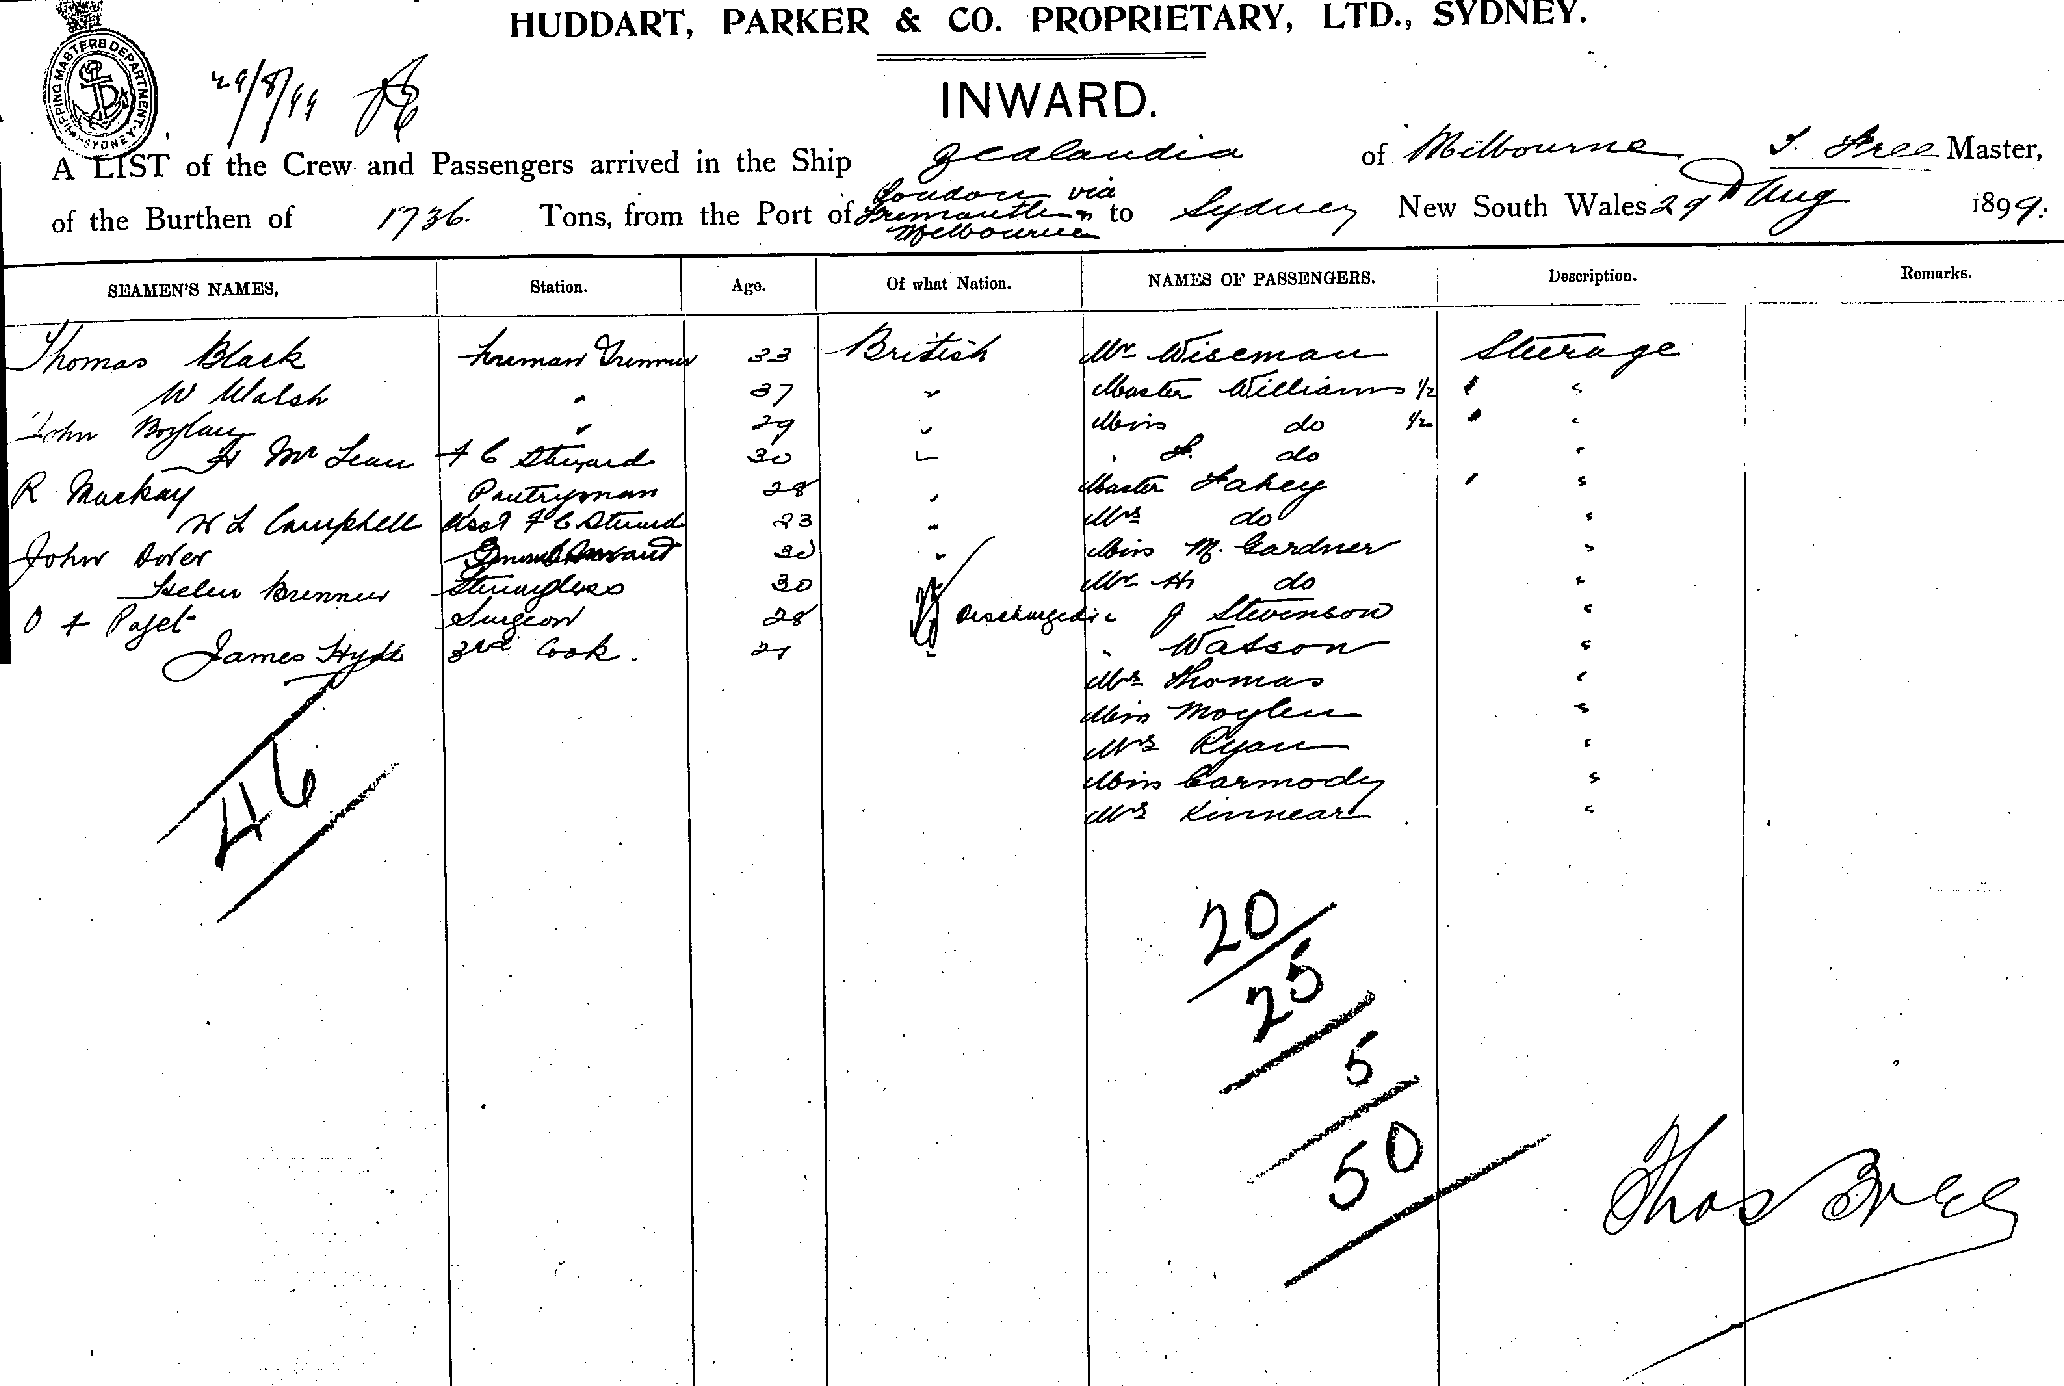 HUDDART, PARKER & CO. PROPRIETARY, LTD., SYDNEY.
SHIPPING MASTERS DEPARTMENT. SYDNEY
29/8/99
INWARD.
A LIST of the Crew and Passengers arrived in the Ship Zealandia of Melbourne T. Free Master,
of the Burthen of 1736 Tons, from the Port of London via Fremantle & Melbourne to Sydney New South Wales 29th Aug 1899.
SEAMEN'S NAMES, Station. Age. Of what Nation. NAMES OF PASSENGERS. Description. Remarks.
Thomas Black Fireman Trimmer 33 British Mr Wiseman Steerage
W Walsh " 37 " Master Williams 1/2 " "
John Boylan " 29 " Miss do 1/2 " "
Mc Lean F C Steward 30 " " do "
R Mackay Pantryman 28 " Master Fahey " "
W L Campbell Asst F C Steward 23 " Mrs do "
John Over General Servant 30 " Miss M. Gardner "
Helen Brenner Stewardess 30 Mr H do "
O F Paget Surgeon 28 Discharged J Stevenson "
James Hyde 3rd Cook. 21 " " Watson "
Mrs Thomas "
Miss Moylen "
Mrs Ryan "
Miss Carmody "
Mrs Kinnear "
46
20
25
5
50
Thos Free